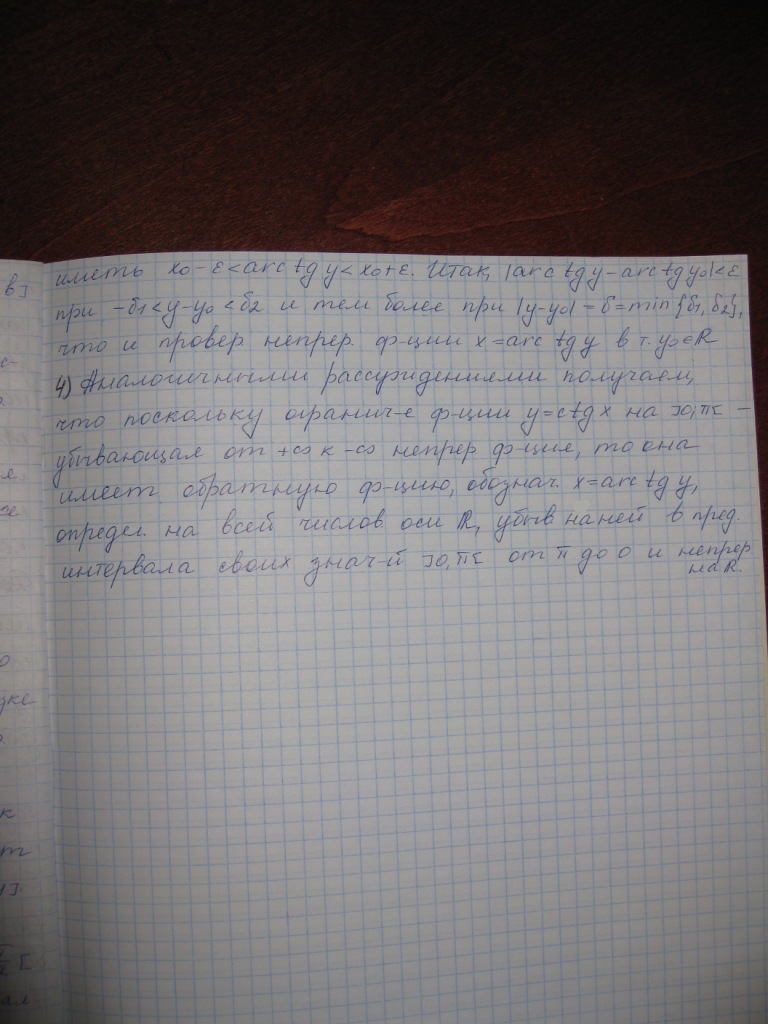 в]
иметь x₀-ε<arc tg y<x₀+ε. Итак, |arc tg y-arc tg y₀|<ε
при -δ₁<y-y₀<δ₂ и тем более при |y-y₀|-δ=min{δ₁,δ₂},
что и провер. непрер. ф-ции x=arc tg y в т. y₀∈R
4) Аналогичными рассуждениями получаем,
что поскольку огранич-е ф-ции y=ctg x на ]0,π[ -
убывающая от +∞ к -∞ непрер ф-ция, то она
имеет обратную ф-цию, обознач. x=arc tg y,
определ. на всей числов. оси R, убыв на ней в пред.
интервала своих знач-й ]0,π[ от π до 0 и непрер
на R.